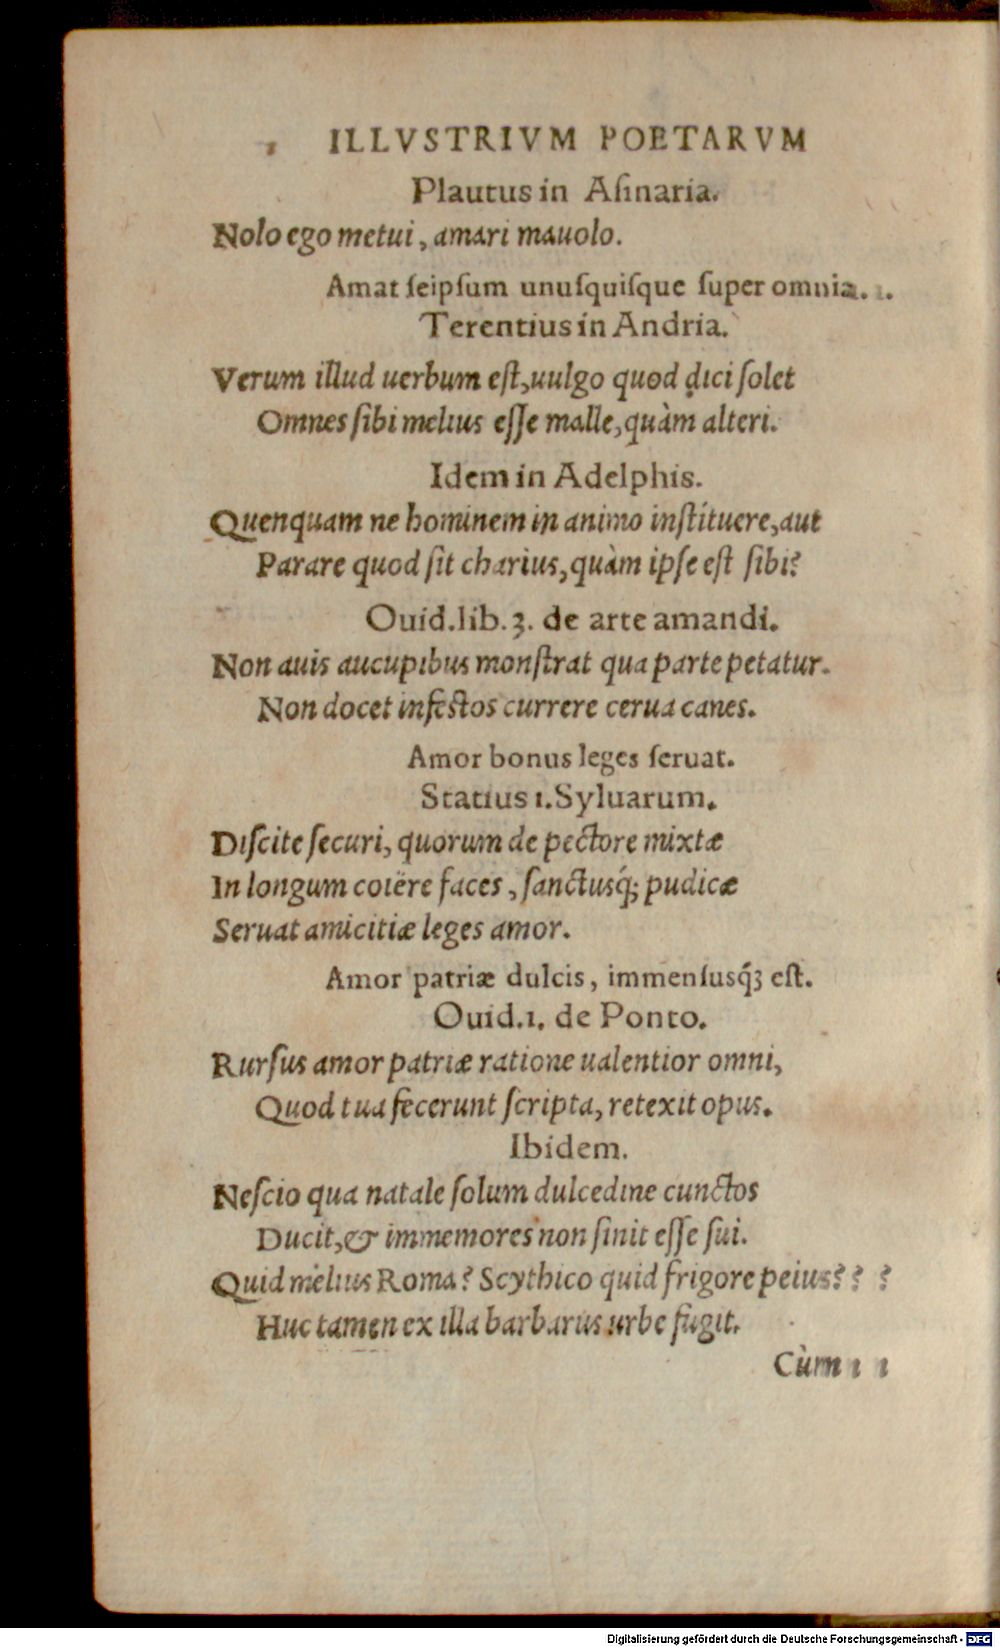 ILLVSTRIVM POETARVM
Plautus in Aſinaria.
Nolo ego metui, amari mauolo.
Amat ſeipſum unuſquiſque ſuper omnia.
Terentius in Andria.
Verum illud uerbum eſt, uulgo quod dici ſolet
Omnes ſibi melius eſſe malle, quàm alteri.
Idem in Adelphis.
Quenquam ne hominem in animo inſtituere, aut
Parare quod ſit charius, quàm ipſe eſt ſibi?
Ouid. lib. 3. de arte amandi.
Non auis aucupibus monſtrat qua parte petatur.
Non docet infeſtos currere cerua canes.
Amor bonus leges ſeruat.
Statius 1. Syluarum.
Diſcite ſecuri, quorum de pectore mixtæ
In longum coiëre faces, ſanctusq́; pudicæ
Seruat amicitiæ leges amor.
Amor patriæ dulcis, immenſusq́; eſt.
Ouid. 1. de Ponto.
Rurſus amor patriæ ratione ualentior omni,
Quod tua fecerunt ſcripta, retexit opus.
Ibidem.
Neſcio qua natale ſolum dulcedine cunctos
Ducit, & immemores non ſinit eſſe ſui.
Quid melius Roma? Scythico quid frigore peius?
Huc tamen ex illa barbarus urbe fugit.
Cùm
Digitalisierung gefördert durch die Deutsche Forschungsgemeinschaft - DFG